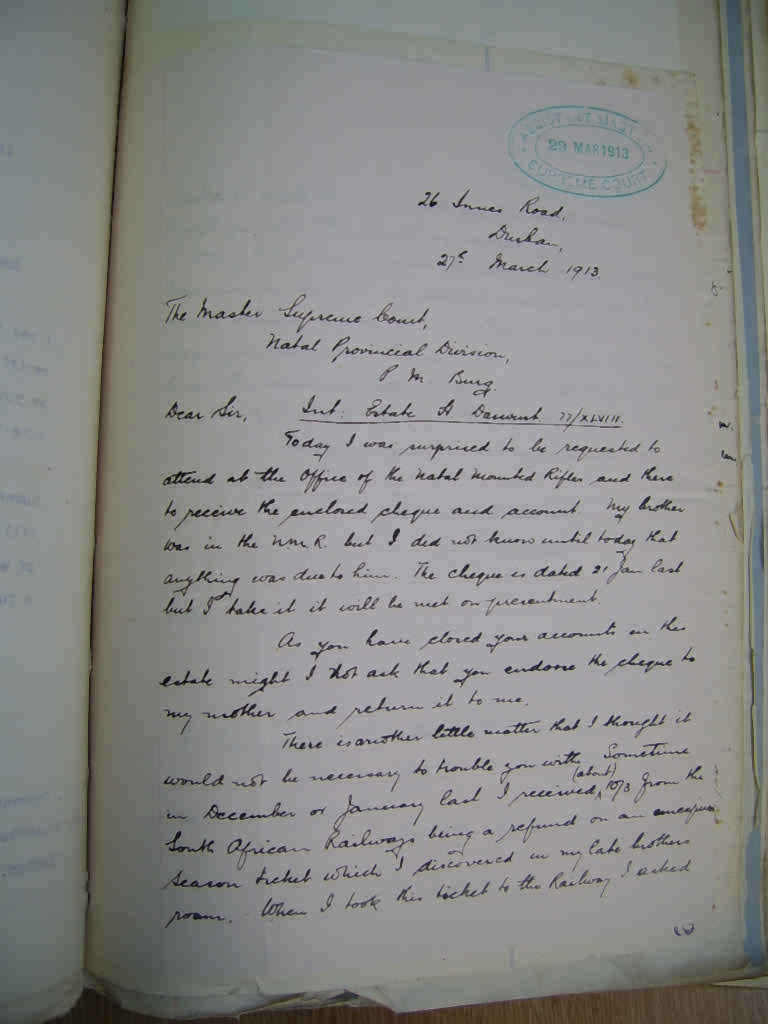 ASSISTANT MASTER
29 MAR 1913
SUPREME COURT
26 Innes Road,
Durban,
27th March 1913.
The Master Supreme Court,
Natal Provincial Division,
P. M. Burg.
Dear Sir, Int: Estate H 77/XLVIII.
Today I was surprised to be requested to
attend at the Office of the Natal Mounted Rifles and there
to receive the enclosed cheque and account. My brother
was in the N.M.R. but I did not know until today that
anything was due to him. The cheque is dated 21 Jan last
but I take it it will be met on presentment.
As you have closed your accounts in this
estate might I not ask that you endorse the cheque to
my mother and return it to me.
There is another little matter that I thought it
would not be necessary to trouble you with. Sometime
in December or January last I received (about) 10/3 from the
South African Railways being a refund on an
season ticket which I discovered in my late brothers
room. When I took this ticket to the Railway I asked